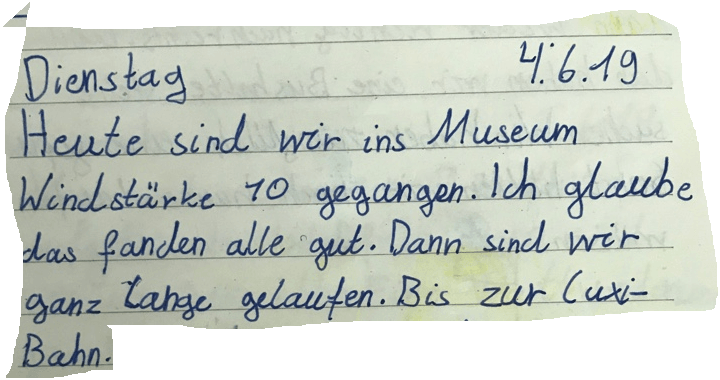 Dienstag 4.6.19
Heute sind wir ins Museum
Windstärke 10 gegangen. Ich glaube
das fanden alle gut. Dann sind wir
ganz lange gelaufen. Bis zur Cuxi-
Bahn.